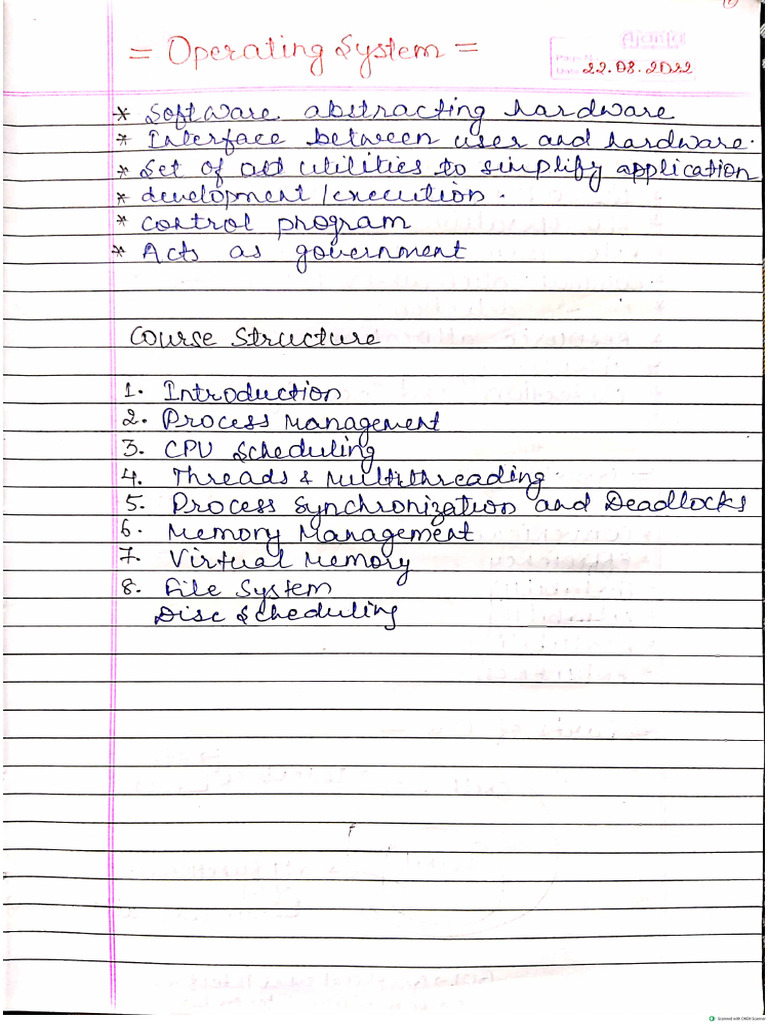 = Operating System =
Ajanta
Date 22.08.2022
* Software abstracting hardware
* Interface between user and hardware.
* Set of utilities to simplify application
* development/execution.
* control program
* Acts as government
Course Structure
1. Introduction
2. Process Management
3. CPU Scheduling
4. Threads & Multithreading.
5. Process Synchronization and Deadlocks
6. Memory Management
7. Virtual Memory
8. File System
Disc Scheduling
Scanned with OKEN Scanner